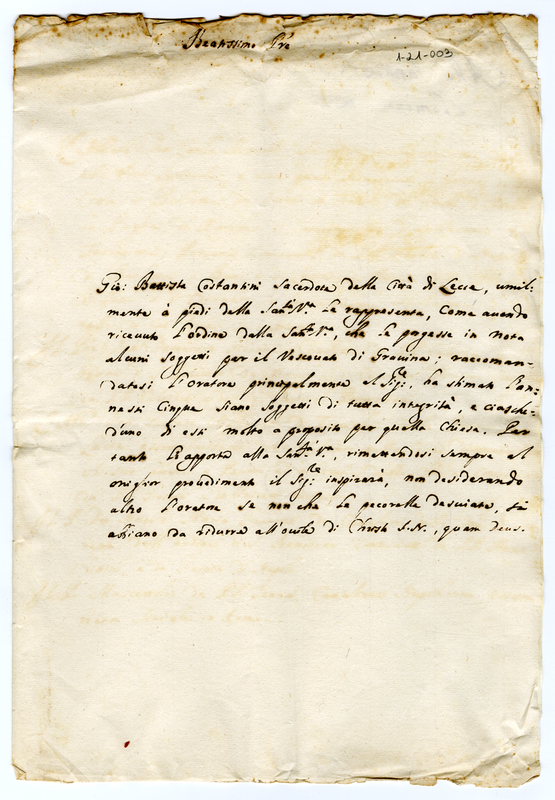 Beatissimo Pre
1-21-003
Gio: Battista Costantini Sacerdote della Città di Lecce, umil-
mente à piedi della Santà Vra Le rappresenta, Come avendo
ricevuto l'ordine dalla Santà Vra, che Le porgesse in nota
alcuni soggetti per il Vescovato di Gravina; raccoman-
datosi l'Oratore principalmente al Sigre, ha stimato l'an-
nesti Cinque siano soggetti di tutta integrità, e ciasche-
d'uno di essi molto a proposito per quella Chiesa. Per
tanto Le apporta alla Santà Vra, rimettendosi sempre al
miglior provedimento il Sigre inspirarà, non desiderando
altro l'Oratore se non che Le pecorelle desviate, si
abbiano da ridurre all'ovile di Christo S.N., quam Deus.